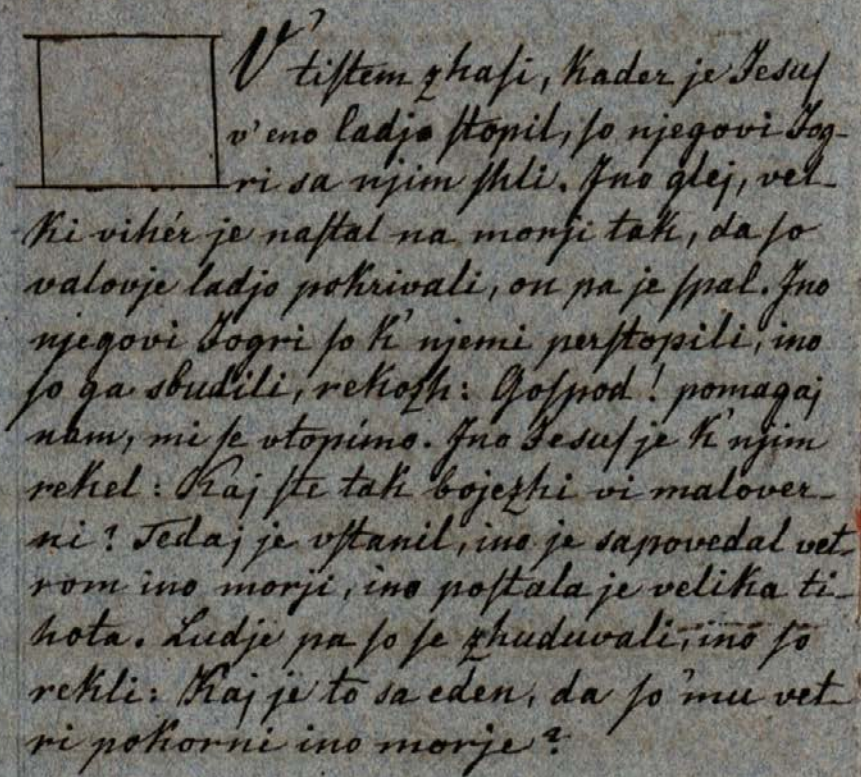 V' tiſtem zhaſi, kader je Jesuſ
v' eno ladjo ſtopil, ſo njegovi Jog-
ri sa njim ſhli. Ino glej, vel-
ki vihér je naſtal na morji tak, da ſo
valovje ladjo pokrivali, on pa je ſpal. Ino
njegovi Jogri ſo k' njemi perſtopili, ino
ſo ga sbudili, rekozh: Goſpod! pomagaj
nam, mi ſe vtopimo. Ino Jesuſ je k' njim
rekel: Kaj ſte tak bojezhi vi malover-
ni? Tedaj je vſtanil, ino je sapovedal vet-
rom ino morji, ino poſtala je velika ti-
hota. Ludje pa ſo ſe zhuduvali, ino ſo
rekli: Kaj je to sa eden, da ſo mu vet-
ri pokorni ino morje?